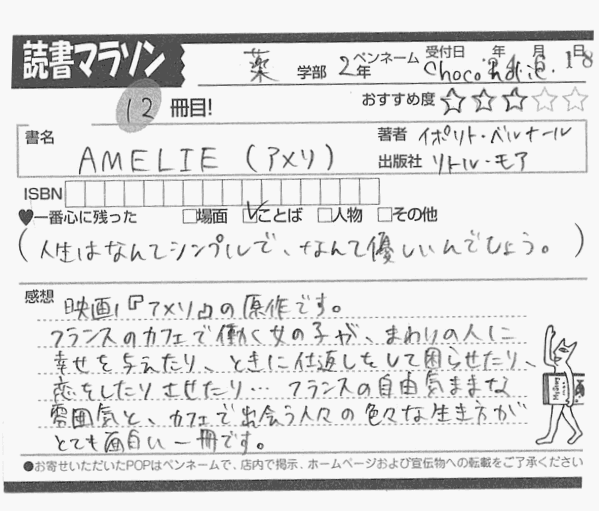 読書マラソン
薬 学部 2年 ペンネーム 受付日 年 月 日
12 冊目! おすすめ度 ☆☆☆☆☆
書名 AMELIE (アメリ)
著者 イポリト・ベルナール
出版社 リトル・モア
ISBN
♥一番心に残った □場面 ☑ことば □人物 □その他
(人生はなんてシンプルで、なんて優しいんでしょう。)
感想 映画『アメリ』の原作です。
フランスのカフェで働く女の子が、まわりの人に
幸せを与えたり、ときに仕返しをして困らせたり、
恋をしたりさせたり… フランスの自由気ままな
雰囲気と、カフェで出会う人々の色々な生き方が
とても面白い一冊です。
●お寄せいただいたPOPはペンネームで、店内で掲示、ホームページおよび宣伝物への転載をご了承ください